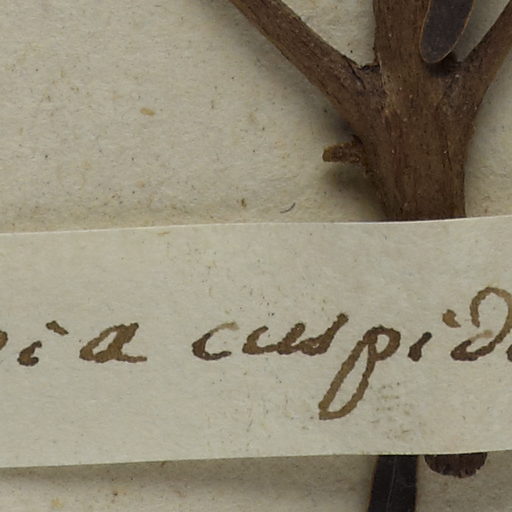 ia cuspid